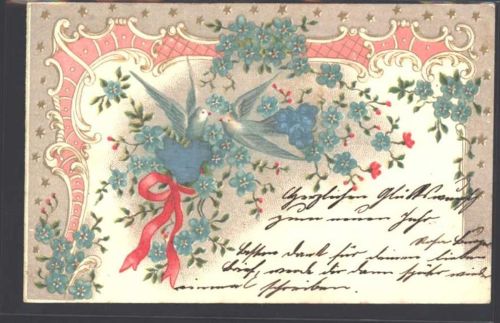 Herzlichen Glückwunsch
zum neuen Jahr.
Besten Dank für deinen lieben
Brief, werde dir dann später wieder
einmal schreiben.